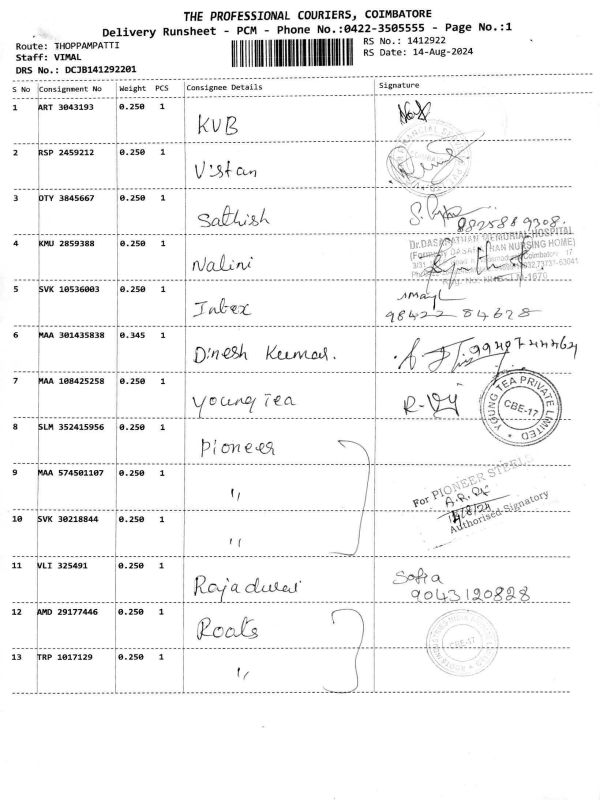 THE PROFESSIONAL COURIERS, COIMBATORE
Delivery Runsheet - PCM - Phone No.:0422-3505555 - Page No.:1
Route: THOPPAMPATTI
RS No.: 1412922
Staff: VIMAL
RS Date: 14-Aug-2024
DRS No.: DCJB141292201
S No Consignment No Weight PCS Consignee Details Signature
1 ART 3043193 0.250 1 KVB
2 RSP 2459212 0.250 1 Vistan
3 DTY 3845667 0.250 1 Sathish
9825889308.
4 KMU 2859388 0.250 1 Nalini
Dr.DASARATHAN MEMORIAL HOSPITAL
NURSING HOME)
5 SVK 10536003 0.250 1 Intex
98422 84628
6 MAA 301435838 0.345 1 Dinesh Kumar.
9940744464
7 MAA 108425258 0.250 1 Young Tea
YOUNG TEA PRIVATE LIMITED
CBE-17
8 SLM 352415956 0.250 1 Pioneer
9 MAA 574501107 0.250 1 "
For PIONEER STEELS
14/8/24
Authorised Signatory
10 SVK 30218844 0.250 1 "
11 VLI 325491 0.250 1 Rajadurai
Sofia
9043120828
12 AMD 29177446 0.250 1 Roots
CBE-17
13 TRP 1017129 0.250 1 "